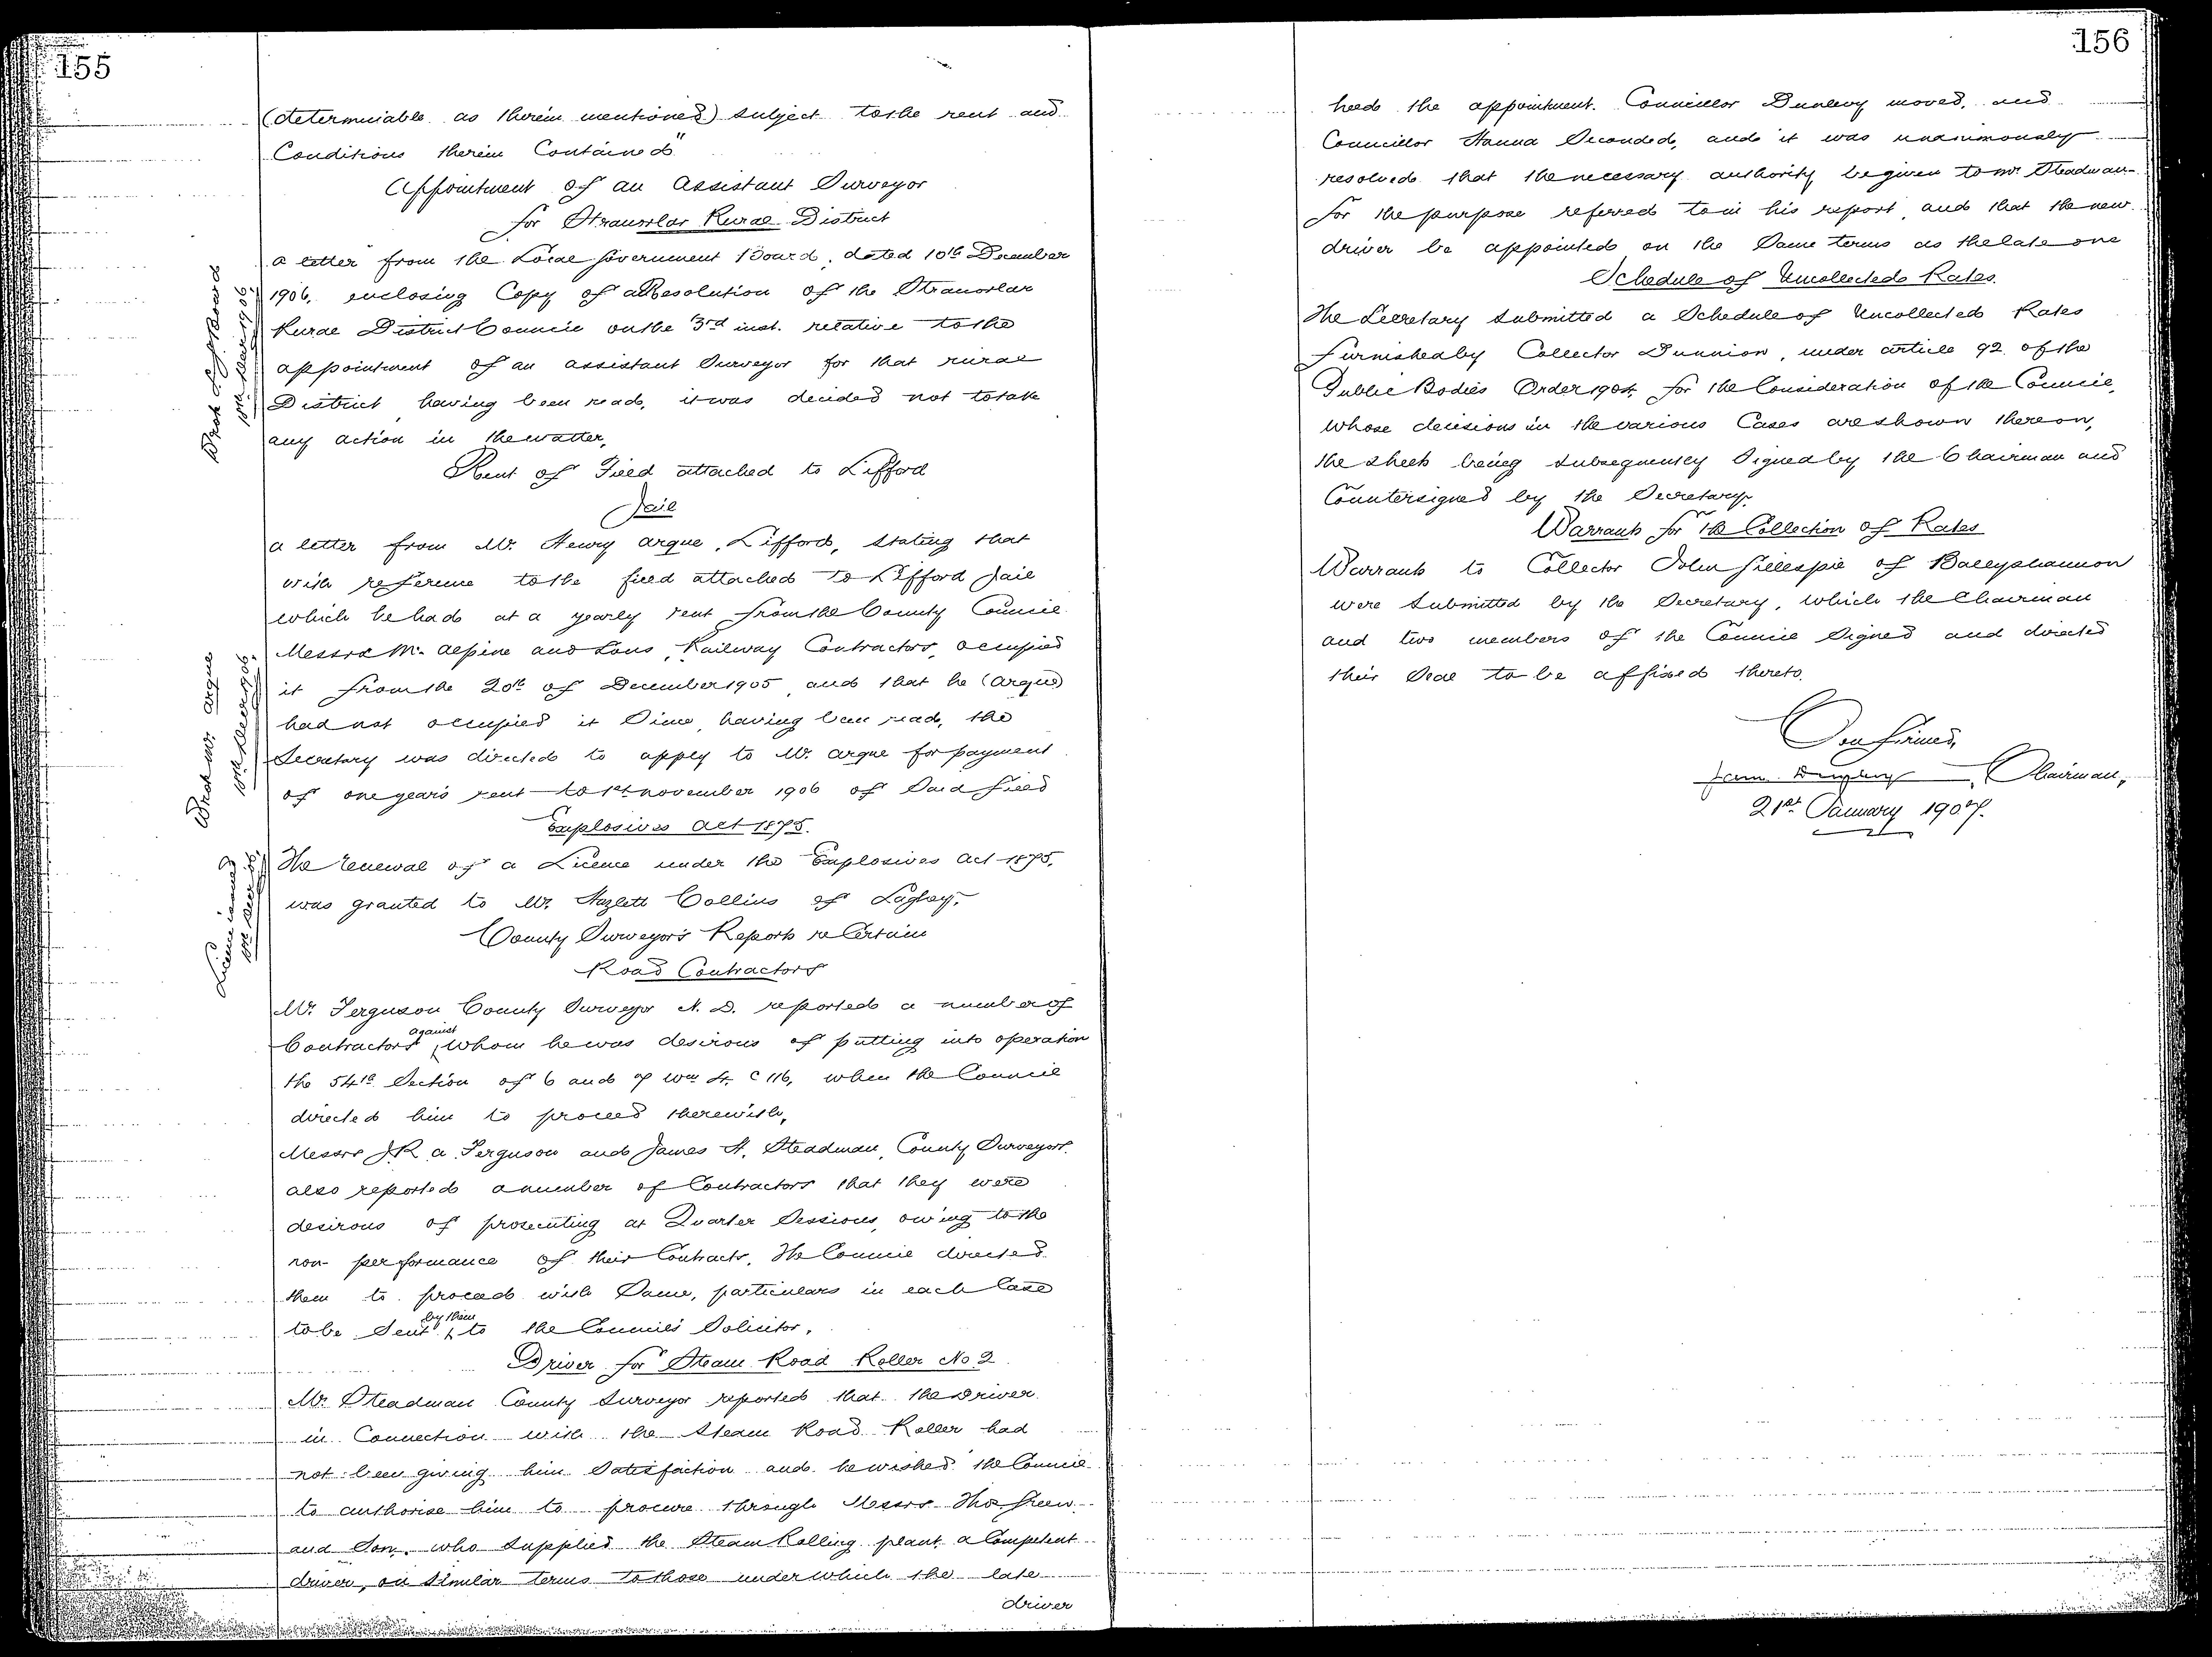 155
(determinable as therein mentioned) subject to the rent and
Conditions therein Contained"
Appointment of an Assistant Surveyor
for Stranorlar Rural District
Wrote L. G. Board
18th Decr 1906
a letter from the Local Government Board, dated 10th December
1906, enclosing Copy of a Resolution of the Stranorlar
Rural District Council on the 3rd inst. relative to the
appointment of an assistant Surveyor for that rural
District having been read, it was decided not to take
any action in the matter.
Rent of Field attached to Lifford
Jail
Wrote Mr. Argue
18th Decr 1906.
a letter from Mr. Henry Argue, Lifford, stating that
with reference to the field attached to Lifford Jail
which he had at a yearly rent from the County Council
Messrs McAlpine and Sons, Railway Contractors, occupied
it from the 20th of December 1905, and that he (Argue)
had not occupied it Since, having been read, the
Secretary was directed to apply to Mr. Argue for payment
of one year's rent to 1st November 1906 of Said field
Explosives Act 1875.
Licence issued
18th Decr 06.
The renewal of a Licence under the Explosives Act 1875,
was granted to Mr. Hazlett Collins of Laghey.
County Surveyor's Reports re Certain
Road Contractors
Mr. Ferguson County Surveyor N. D. reported a number of
Contractors against whom he was desirous of putting into operation
the 54th Section of 6 and 7 Wm 4. C 116, when the Council
directed him to proceed therewith.
Messrs J.R. A. Ferguson and James H. Steadman, County Surveyors.
also reported a number of Contractors that they were
desirous of prosecuting at Quarter Sessions, owing to the
non-performance of their Contracts. The Council directed
them to proceed with Same, particulars in each Case
to be Sent by them to the Council's Solicitor.
Driver for Steam Road Roller No 2
Mr. Steadman County Surveyor reported that the Driver
in Connection with the Steam Road Roller had
not been giving him Satisfaction and he wished the Council
to authorise him to procure through Messrs Thos Green
and Son, who Supplied the Steam Rolling plant a Competent
driver, on Similar terms to those under which the late
driver
156
held the appointment. Councillor Dunlevy moved, and
Councillor Hanna Seconded, and it was unanimously
resolved that the necessary authority be given to Mr. Steadman
for the purpose referred to in his report, and that the new
driver be appointed on the Same terms as the late one
Schedule of Uncollected Rates.
The Secretary submitted a Schedule of Uncollected Rates
furnished by Collector Dunnion, under article 92 of the
Public Bodies Order 1904, for the Consideration of the Council,
whose decisions in the various Cases are shown thereon,
the sheets being subsequently Signed by the Chairman and
Countersigned by the Secretary.
Warrants for the Collection of Rates
Warrants to Collector John Gillespie of Ballyshannon
were submitted by the Secretary, which the Chairman
and two members of the Council Signed and directed
their Seal to be affixed thereto.
Confirmed,
Chairman,
21st January 1907.